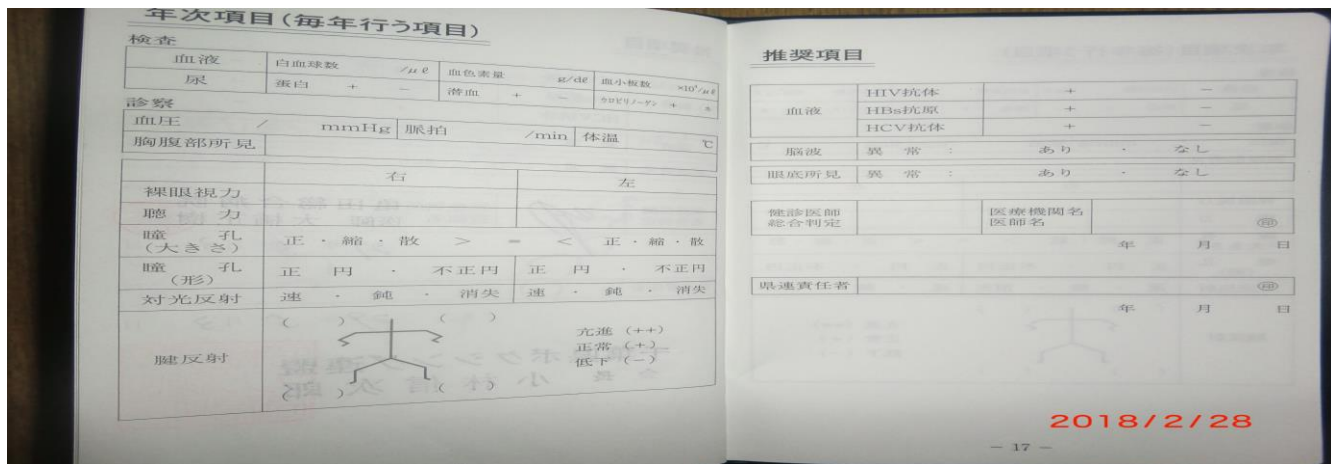 年次項目(毎年行う項目)
検査
血液 白血球数 /μℓ 血色素量 g/dℓ 血小板数 ×10³/μℓ
尿 蛋白 + − 潜血 + − ウロビリノーゲン + ±
診察
血圧 / mmHg 脈拍 /min 体温 ℃
胸腹部所見
右 左
裸眼視力
聴力
瞳孔(大きさ) 正・縮・散 > = < 正・縮・散
瞳孔(形) 正円・不正円 正円・不正円
対光反射 速・鈍・消失 速・鈍・消失
腱反射 ( ) ( ) ( ) ( )
亢進(++)
正常(+)
低下(−)
推奨項目
血液 HIV抗体 + −
HBs抗原 + −
HCV抗体 + −
脳波 異常: あり・なし
眼底所見 異常: あり・なし
健診医師総合判定 医療機関名医師名 ㊞
年 月 日
県連責任者 ㊞
年 月 日
2018/2/28
− 17 −